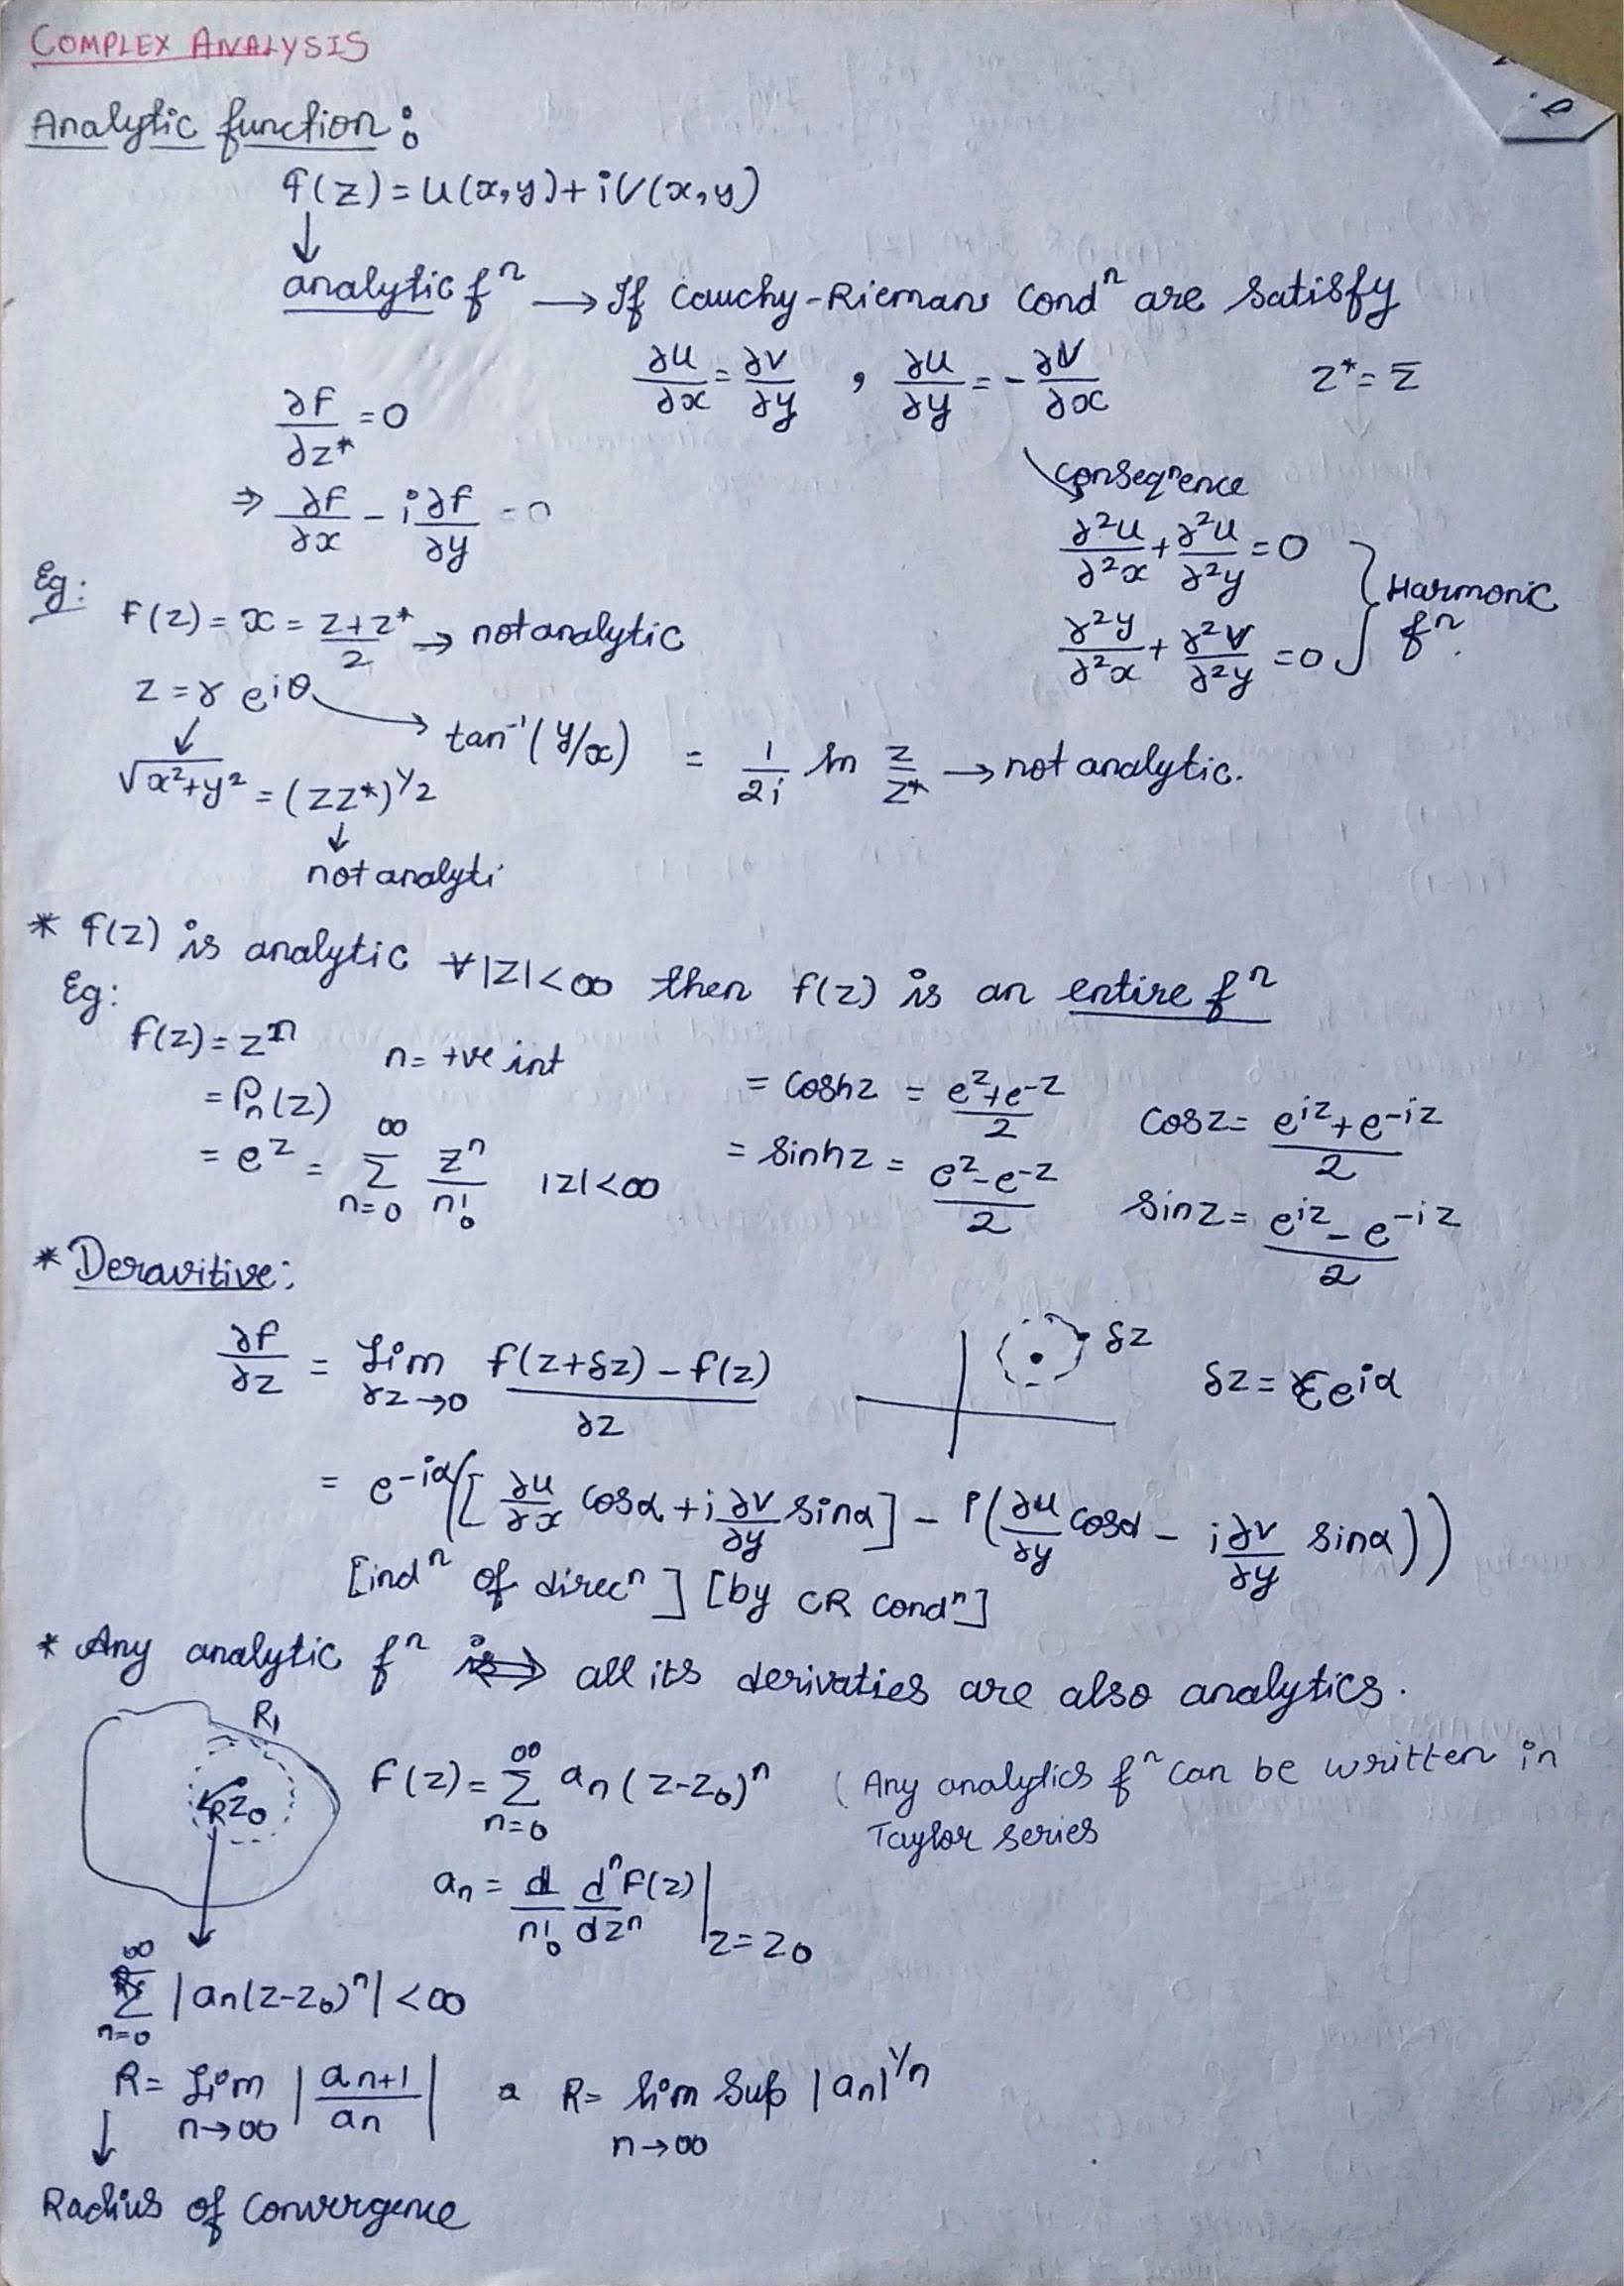 COMPLEX ANALYSIS
Analytic function :
f(z) = u(x,y) + iV(x,y)
↓
analytic fⁿ → If Cauchy-Riemans Condⁿ are satisfy
∂u/∂x = ∂v/∂y , ∂u/∂y = -∂V/∂x z* = z̄
∂f/∂z* = 0
⇒ ∂f/∂x - i∂f/∂y = 0
conseqⁿence
∂²u/∂²x + ∂²u/∂²y = 0
∂²y/∂²x + ∂²v/∂²y = 0 } Harmonic fⁿ.
Eg:
f(z) = x = (z+z*)/2 → not analytic
z = r e^iθ → tan⁻¹(y/x) = 1/2i ln z/z* → not analytic.
↓
√x²+y² = (zz*)^1/2
↓
not analyti
* f(z) is analytic ∀|z|<∞ then f(z) is an entire fⁿ
Eg:
f(z) = zⁿ n = +ve int
= Pn(z)
= e^z = ∞Σn=0 zⁿ/n! |z|<∞
= coshz = (e^z+e^-z)/2 cosz = (e^iz+e^-iz)/2
= sinhz = (e^z-e^-z)/2 sinz = (e^iz-e^-iz)/2
* Deravitive:
∂f/∂z = Lim ∂z→0 (f(z+δz) - f(z))/∂z δz δz = εe^iα
= e^-iα([∂u/∂x cosα + i∂v/∂y sinα] - i(∂u/∂y cosα - i∂v/∂y sinα))
[indⁿ of direcⁿ] [by CR condⁿ]
* Any analytic fⁿ ⟺ all its derivaties are also analytics.
R₁
R z₀
f(z) = ∞Σn=0 an(z-z₀)ⁿ (Any analytics fⁿ can be written in
Taylor series
an = 1/n! dⁿf(z)/dzⁿ |z=z₀
∞Σn=0 |an(z-z₀)ⁿ| < ∞
R = Lim n→∞ |an+1/an| a R = lim sup n→∞ |an|^1/n
↓
Radius of Convergence